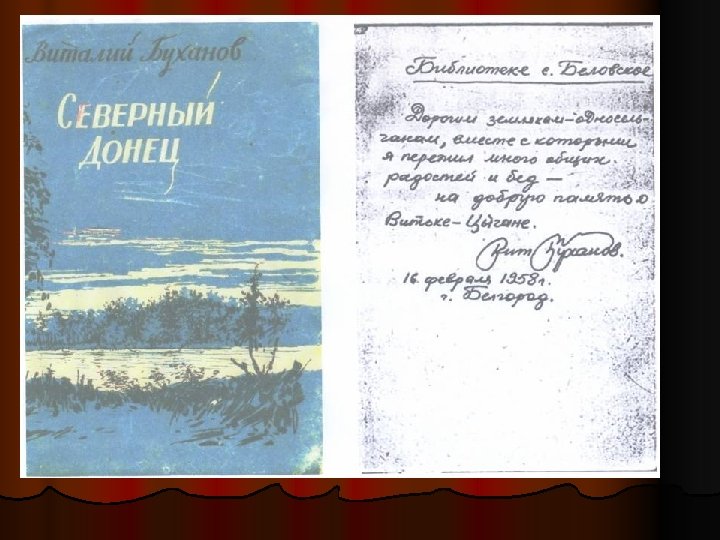 Виталий Буханов
СЕВЕРНЫЙ
ДОНЕЦ
Библиотеке с. Беловское
Дорогим землякам-односель-
чанам, вместе с которыми
я пережил много общих
радостей и бед —
на добрую память о
Витьке-Цыгане.
Вит Буханов.
16 февраля 1958 г.
г. Белгород.